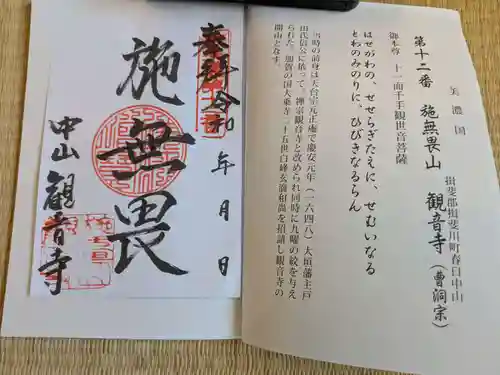 美濃国
第十二番 施無畏山 観音寺(曹洞宗)
揖斐郡揖斐川町春日中山
御本尊 十一面千手観世音菩薩
はせがわの、せせらぎたえに、せむいなる
とわのみのりに、ひびきなるらん
当時の前身は天台宗元正庵で慶安元年(一六四八)大垣藩主戸
田氏信公に依って。禅宗観音寺と改められ同時に九曜の紋を与え
られた。加賀の国大乗寺二十五世白峰玄滴和尚を招請し観音寺の
開山となす。
奉拝 令和 年 月 日
施無畏
中山 観音寺